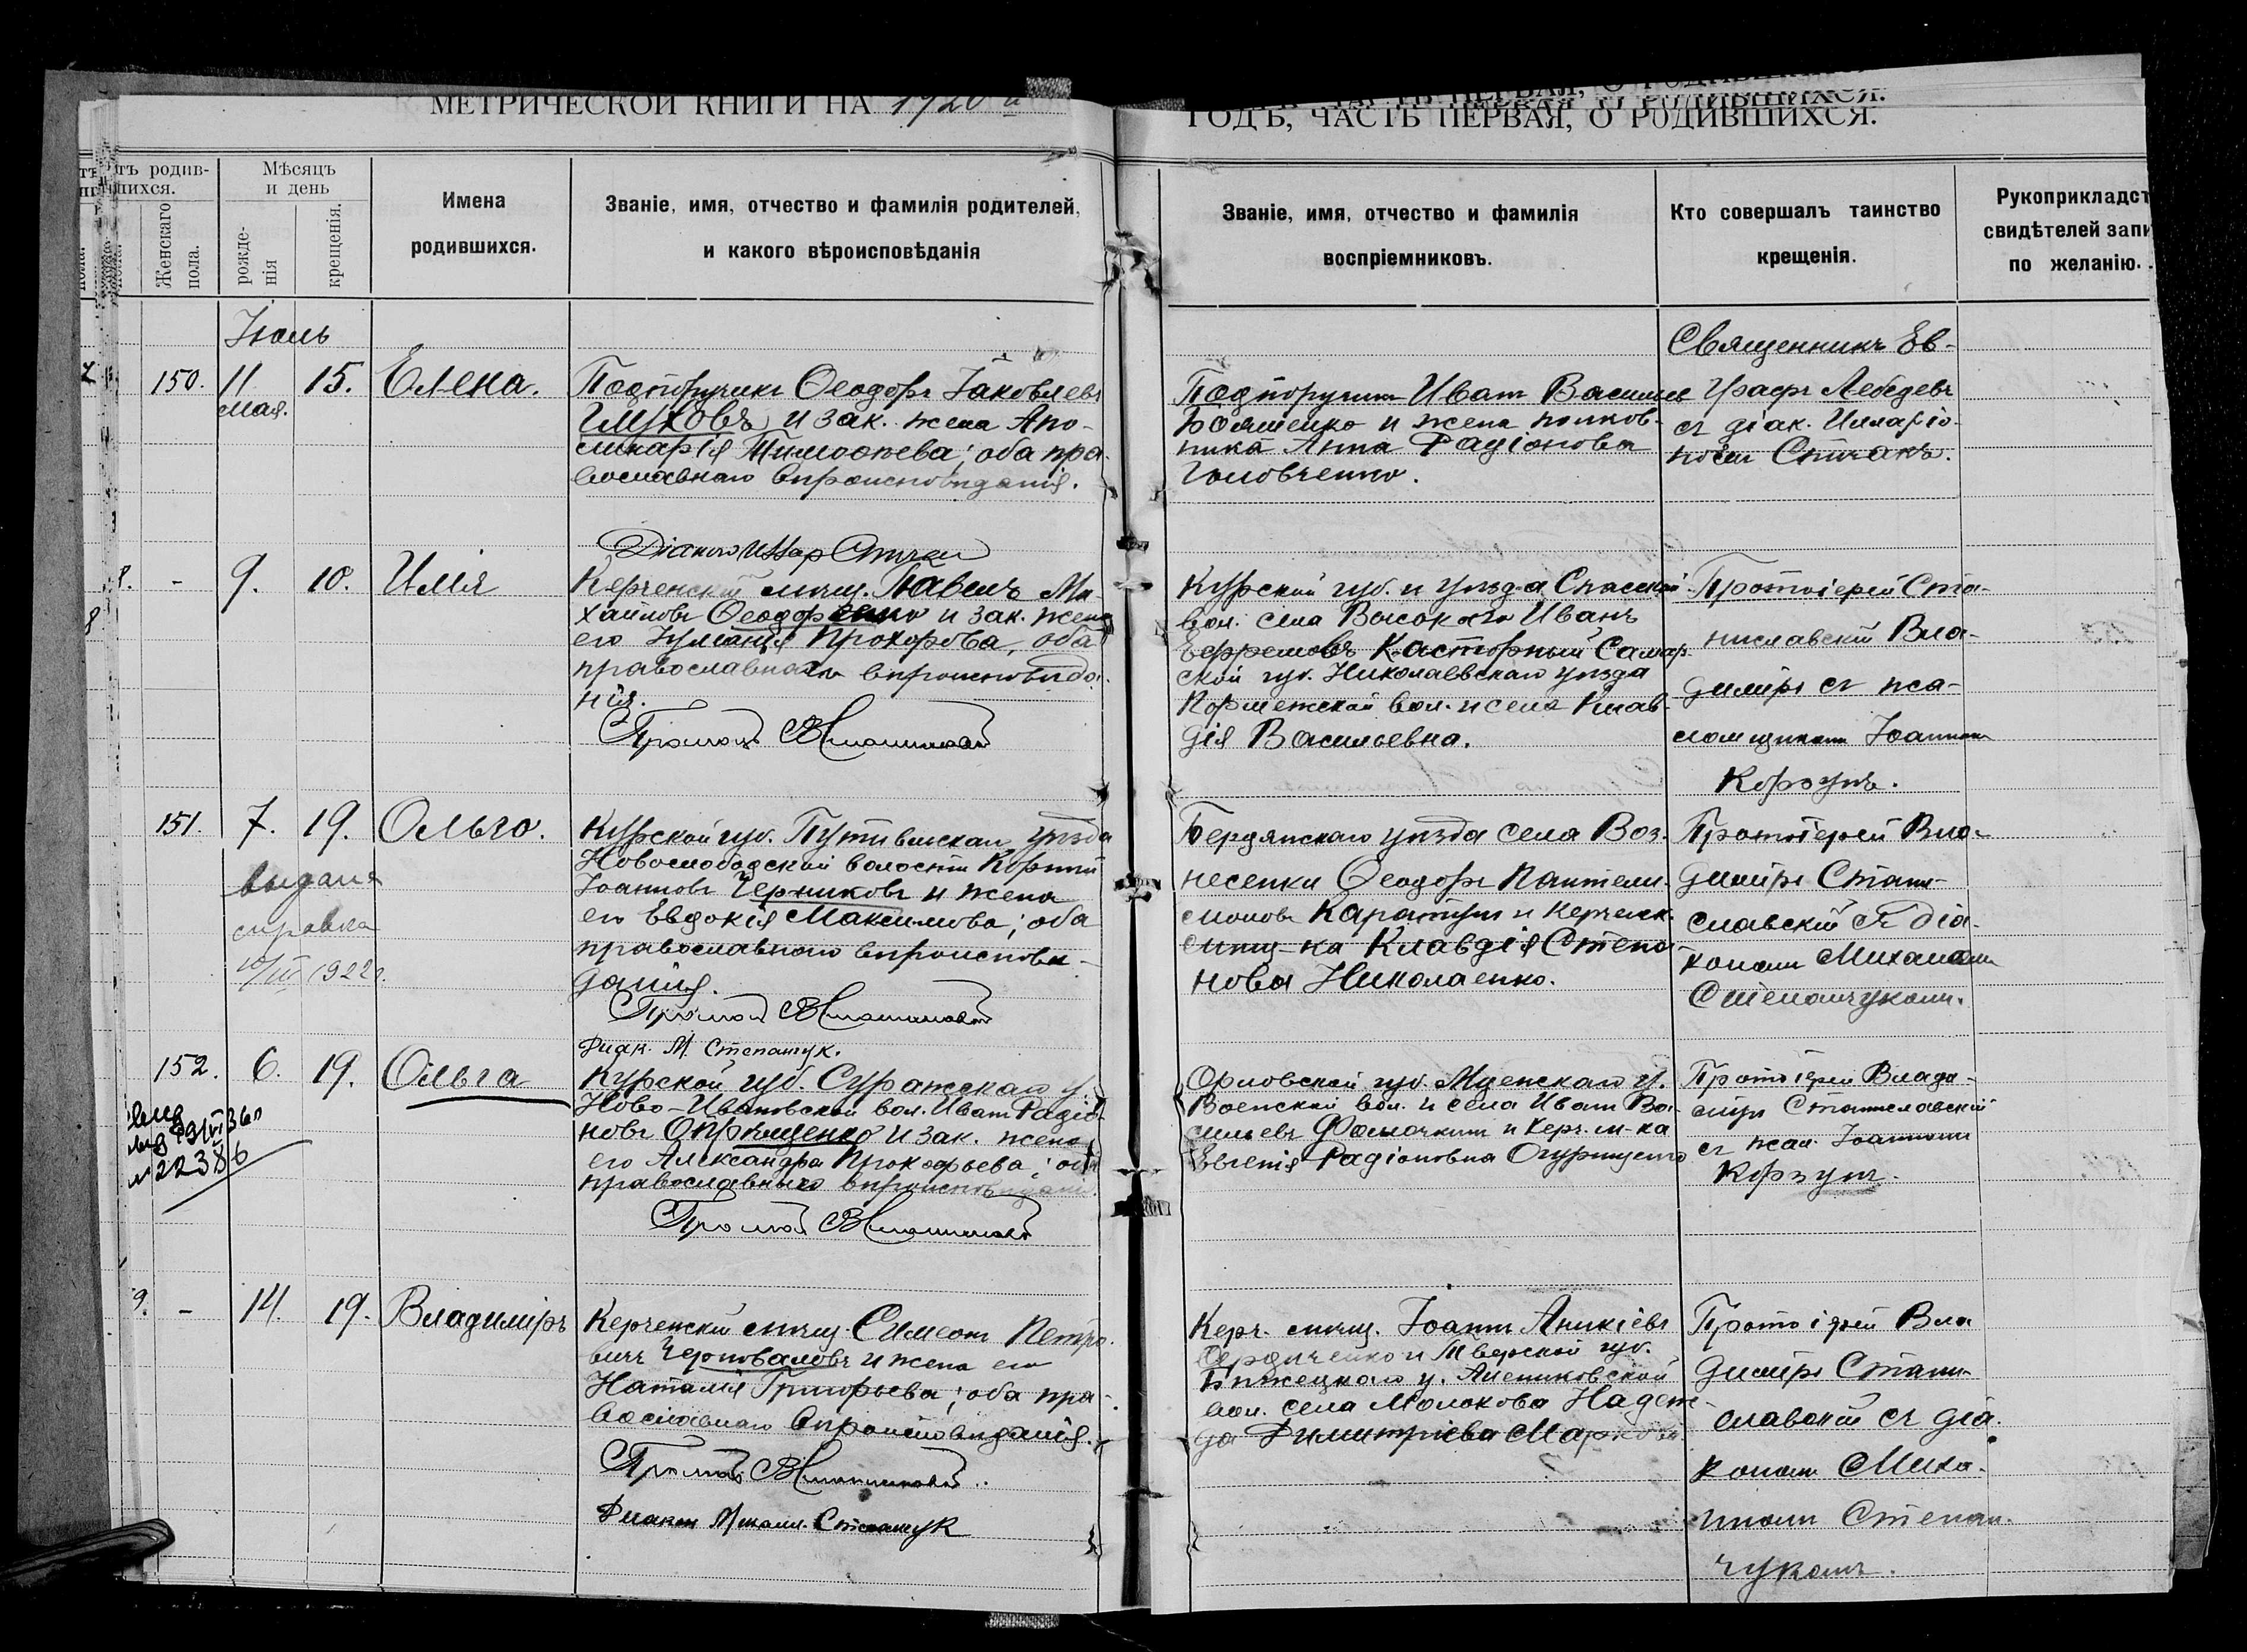 МЕТРИЧЕСКОЙ КНИГИ НА 1920 й
ГОДЪ, ЧАСТЬ ПЕРВАЯ, О РОДИВШИХСЯ.
Женскаго пола.
Мѣсяцъ и день
рожде-
нія
крещенія.
Имена
родившихся.
Званіе, имя, отчество и фамилія родителей,
и какого вѣроисповѣданія
Званіе, имя, отчество и фамилія
воспріемниковъ.
Кто совершалъ таинство
крещенія.
Рукоприкладст
свидѣтелей запи
по желанію.
Іюль
150. 11 мая. 15. Елена.
Подпоручикъ Ѳеодоръ Іаковлевъ
и зак. жена Апо-
линарія Тимоѳеева; оба пра-
вославнаго вѣроисповѣданія.
Подпоручикъ Иванъ Васильев
и жена полков-
ника Анна Радіонова
Головченко.
Священникъ Ев-
графъ Лебедевъ
съ діак. Илларіо-
номъ
- 9. 10. Илія
Керченскій мѣщ. Павелъ Ми-
хайловъ Ѳеодоренко и зак. жена
его Іуліанія Прохорова, оба
православнаго вѣроисповѣда-
нія.
Курской губ. и уѣзда Спасской
вол. села Высокаго Иванъ
Ефремовъ Касторный Самар-
ской губ. Николаевскаго уѣзда
вол. и села Клав-
дія Васильевна.
Протоіерей Ста-
ниславскій Вла-
димиръ съ пса-
ломщикомъ Іоанномъ
Корзунъ.
151. 7. 19. Ольга.
выдана
справка
1922 г.
Курской губ. Путивльскаго уѣзда
Новослободской волости
Іоанновъ Черниковъ и жена
его Евдокія Максимова; оба
православнаго вѣроисповѣ-
данія.
Диак. М. Степанчук.
Бердянскаго уѣзда села Воз-
несенки Ѳеодоръ Пантели-
моновъ и Керченск.
мѣщ-ка Клавдія Степа-
нова Николаенко.
Протоіерей Вла-
димиръ Стани-
славскій съ діа-
кономъ Михаиломъ
Степанчукомъ.
152. 6. 19. Ольга
Курской губ. Суражскаго у.
Ново-Ивановской вол. Иванъ Радіо-
новъ и зак. жена
его Александра Прокофьева; оба
православнаго вѣроисповѣдані
Орловской губ. Мценскаго у.
вол. и села Иванъ Ва-
сильевъ и Керч. м-ка
Евгенія Радіоновна
Протоіерей Влади-
миръ Станиславскій
съ псал. Іоанномъ
Корзунъ.
9. - 14. 19. Владиміръ
Керченскій мѣщ. Симеонъ Петро-
вичъ Черноваловъ и жена его
Наталія Григорьева; оба пра-
вославнаго вѣроисповѣданія.
Диакон Михаил Степанчук
Керч. мѣщ. Іоаннъ Аникіевъ
и Тверской губ.
Бѣжецкаго у.
вол. села Молокова Надеж-
да Димитріева
Протоіерей Вла
димиръ Стани-
славскій съ діа-
кономъ Миха-
иломъ Степан-
чукомъ.